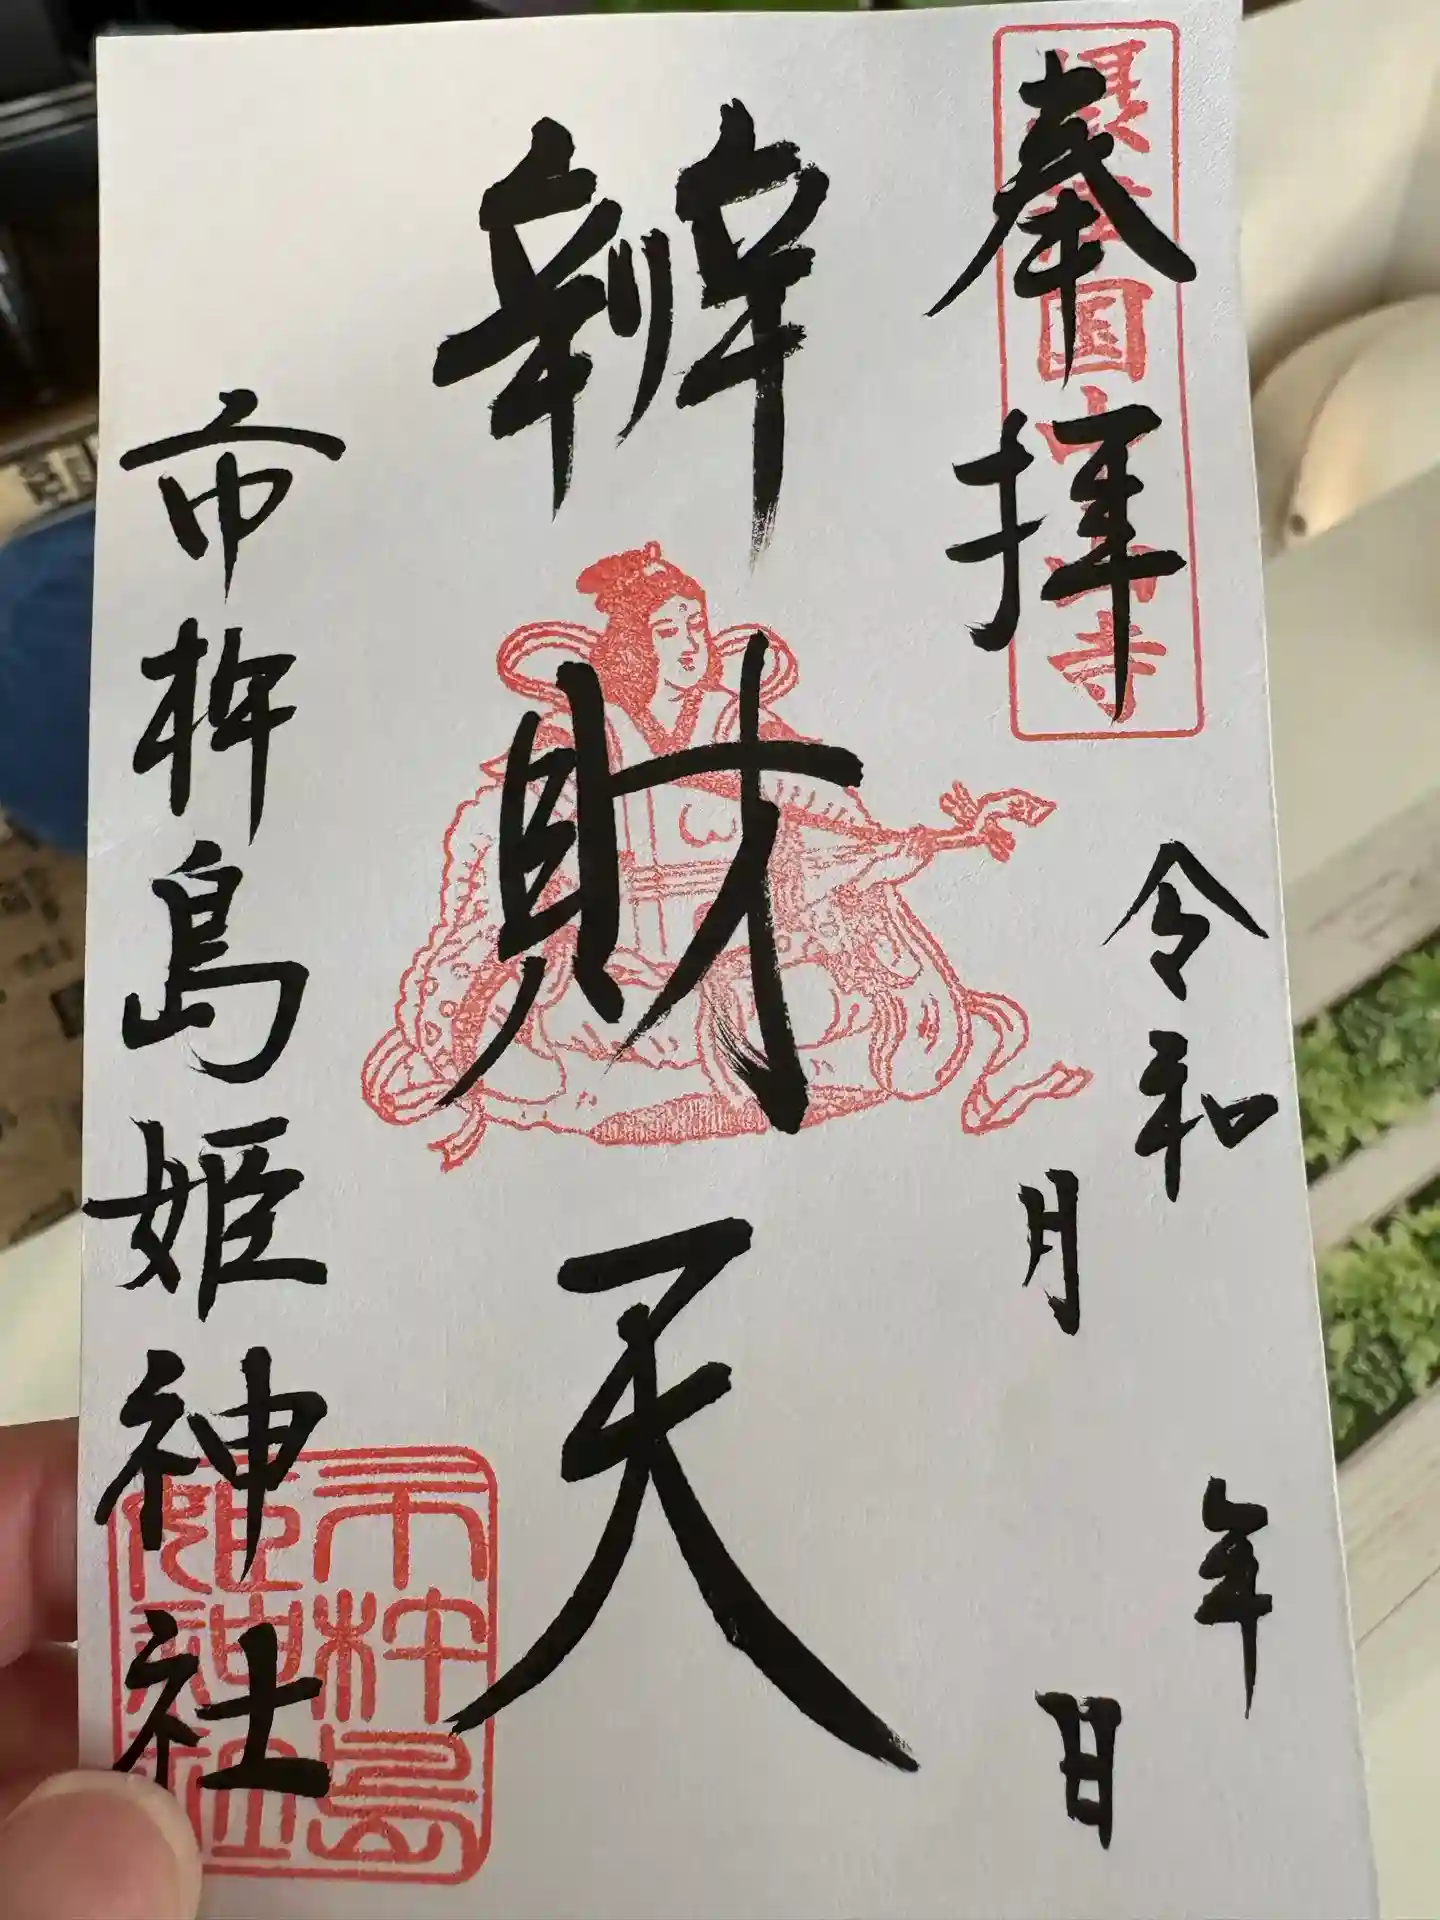 奉拝
令和 年
月 日
辨財天
市杵島姫神社
市杵島
姫神社